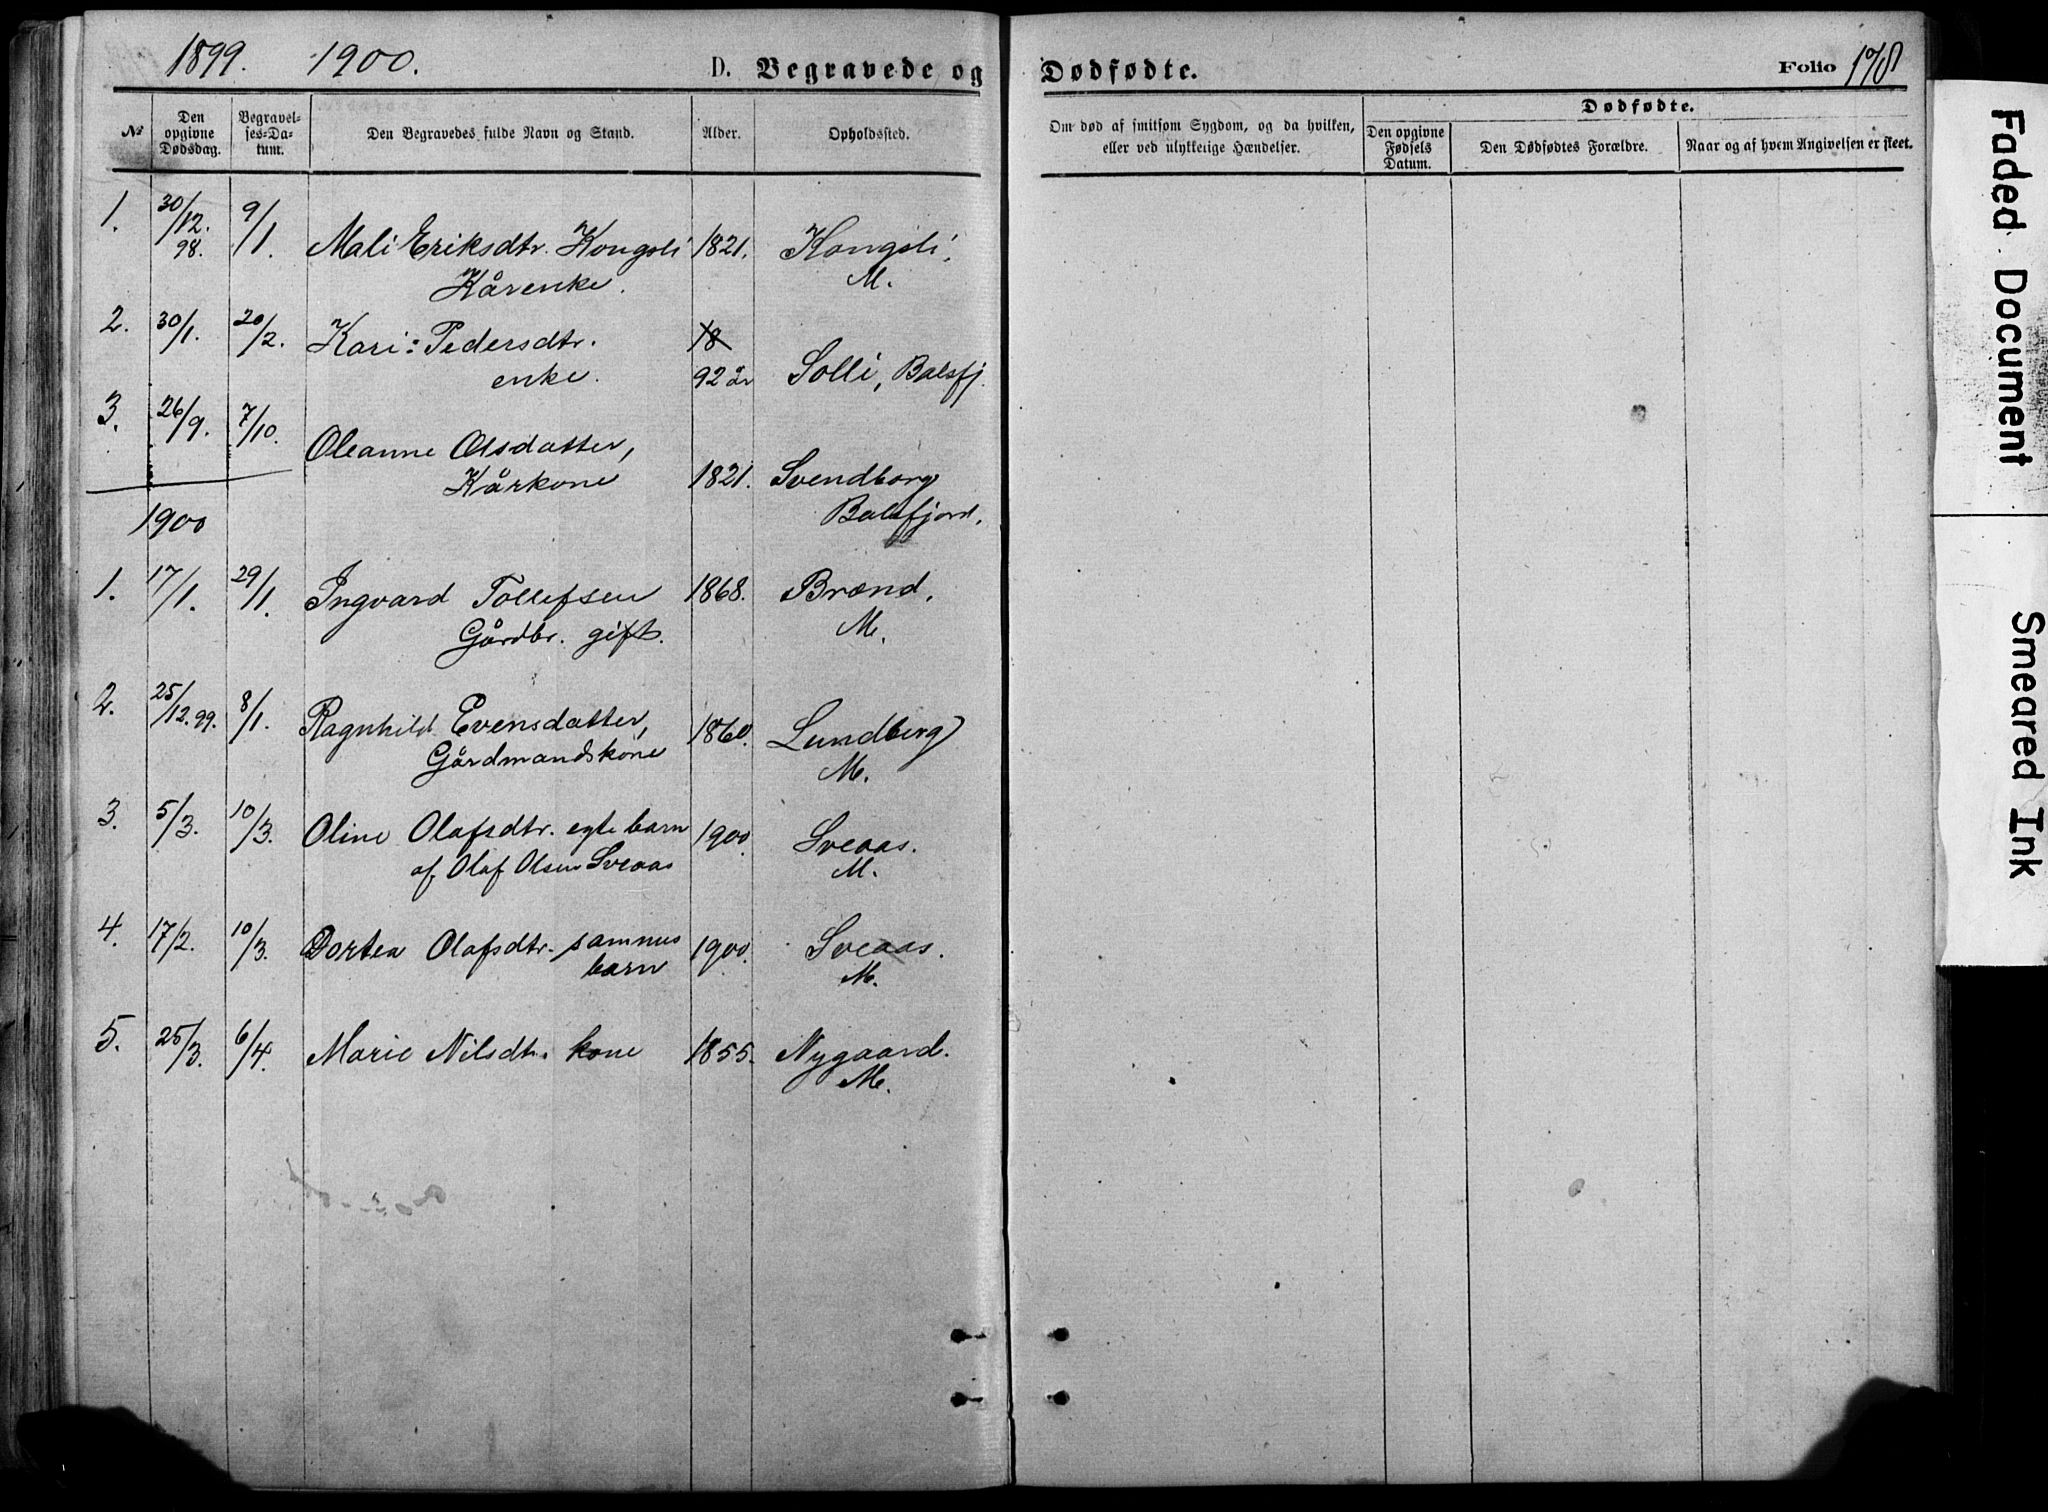 1899. 1900. D. Begravede og Dødfødte. Folio 178
№
Den opgivne Dødsdag.
Begravel-ses-Da-tum.
Den Begravedes fulde Navn og Stand.
Alder.
Opholdssted.
Om død af smitsom Sygdom, og da hvilken,
eller ved ulykkelige Hændelser.
Dødfødte.
Den opgivne Fødsels Datum.
Den Dødfødtes Forældre.
Naar og af hvem Angivelsen er skeet.
1. 30/12. 98. 9/1 Mali Eriksdtr. Kongsli 1821. Kongsli,
Kårenke. M.
2. 30/1. 20/2. Kari Pedersdtr. 18
enke. 92 år Solli, Balsfj.
3. 26/9. 7/10. Oleanne Olsdatter,
Kårkone 1821. Svendborg
Balsfjord.
1900
1. 17/1. 29/1. Ingvard Tollefsen 1868. Brænd,
Gårdbr. gift. M.
2. 25/12. 99. 8/1. Ragnhild Evensdatter, 1860. Lundberg
Gårdmandskone M.
3. 5/3. 10/3. Oline Olafsdtr. egte barn 1900 Sveaas.
af Olaf Olsen Sveaas M.
4. 17/2. 10/3. Dortea Olafsdtr. sammes 1900. Sveaas.
barn M.
5. 25/3. 6/4. Marie Nilsdtr. kone 1855. Nygaard.
M.
Faded Document
Smeared Ink